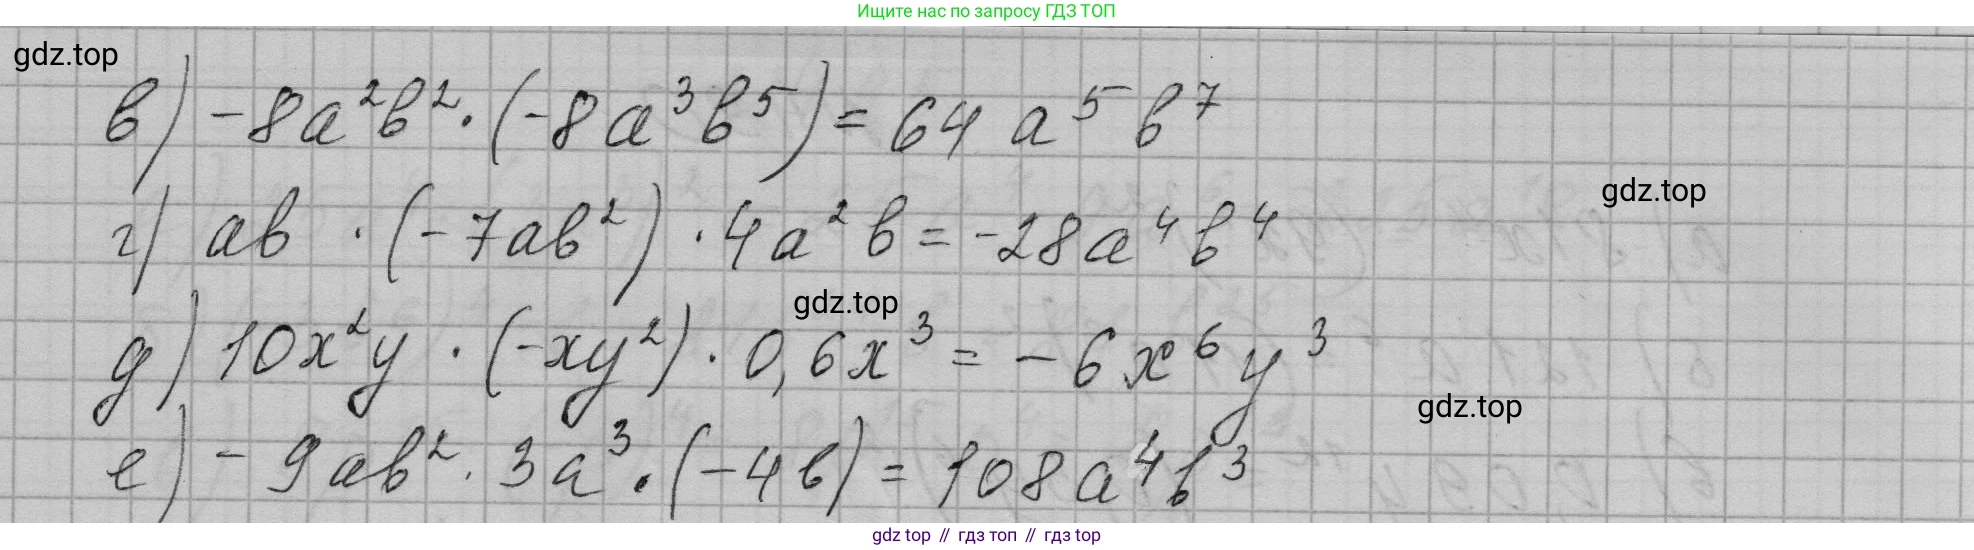 Ищите нас по запросу ГДЗ ТОП
gdz.top
в) -8a²b² · (-8a³b⁵) = 64a⁵b⁷
gdz.top
г) ab · (-7ab²) · 4a²b = -28a⁴b⁴
gdz.top
д) 10x²y · (-xy²) · 0,6x³ = -6x⁶y³
gdz.top
е) -9ab² · 3a³ · (-4b) = 108a⁴b³
gdz top // гдз топ // gdz top